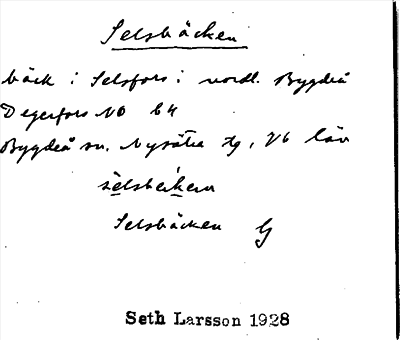 Selsbäcken
bäck i Selsfors i nordl. Bygdeå
Degerfors NO b4
Bygdeå sn. Nysätra tg, Vb län
sèlsbɛkɛn
Selsbäcken G
Seth Larsson 1928